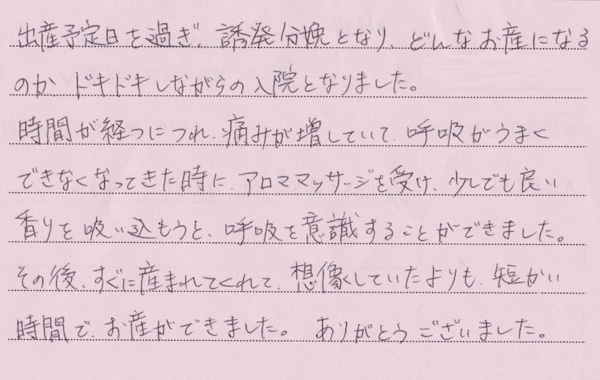 出産予定日を過ぎ、誘発分娩となり どんなお産になる
のか ドキドキしながらの入院となりました。
時間が経つにつれ、痛みが増していて、呼吸がうまく
できなくなってきた時に、アロママッサージを受け、少しでも良い
香りを吸い込もうと、呼吸を意識することができました。
その後、すぐに産まれてくれて、想像していたよりも、短かい
時間で、お産ができました。 ありがとうございました。